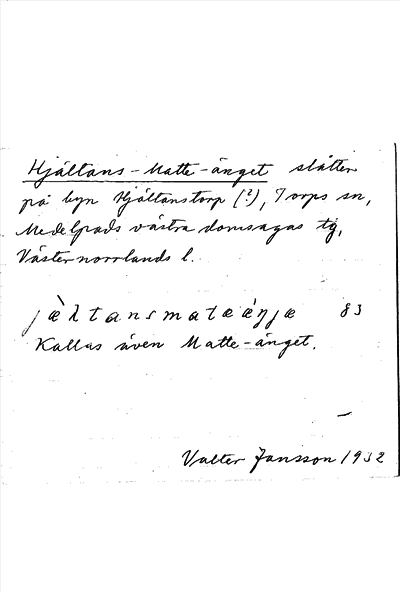 Hjältans-Matte-änget slåtter
på byn Hjältanstorp (?), Torps sn,
Medelpads västra domsagas tg,
Västernorrlands l.
jæ̀ltansmatæéŋjæ 83
Kallas även Matte-änget.
Valter Jansson 1932